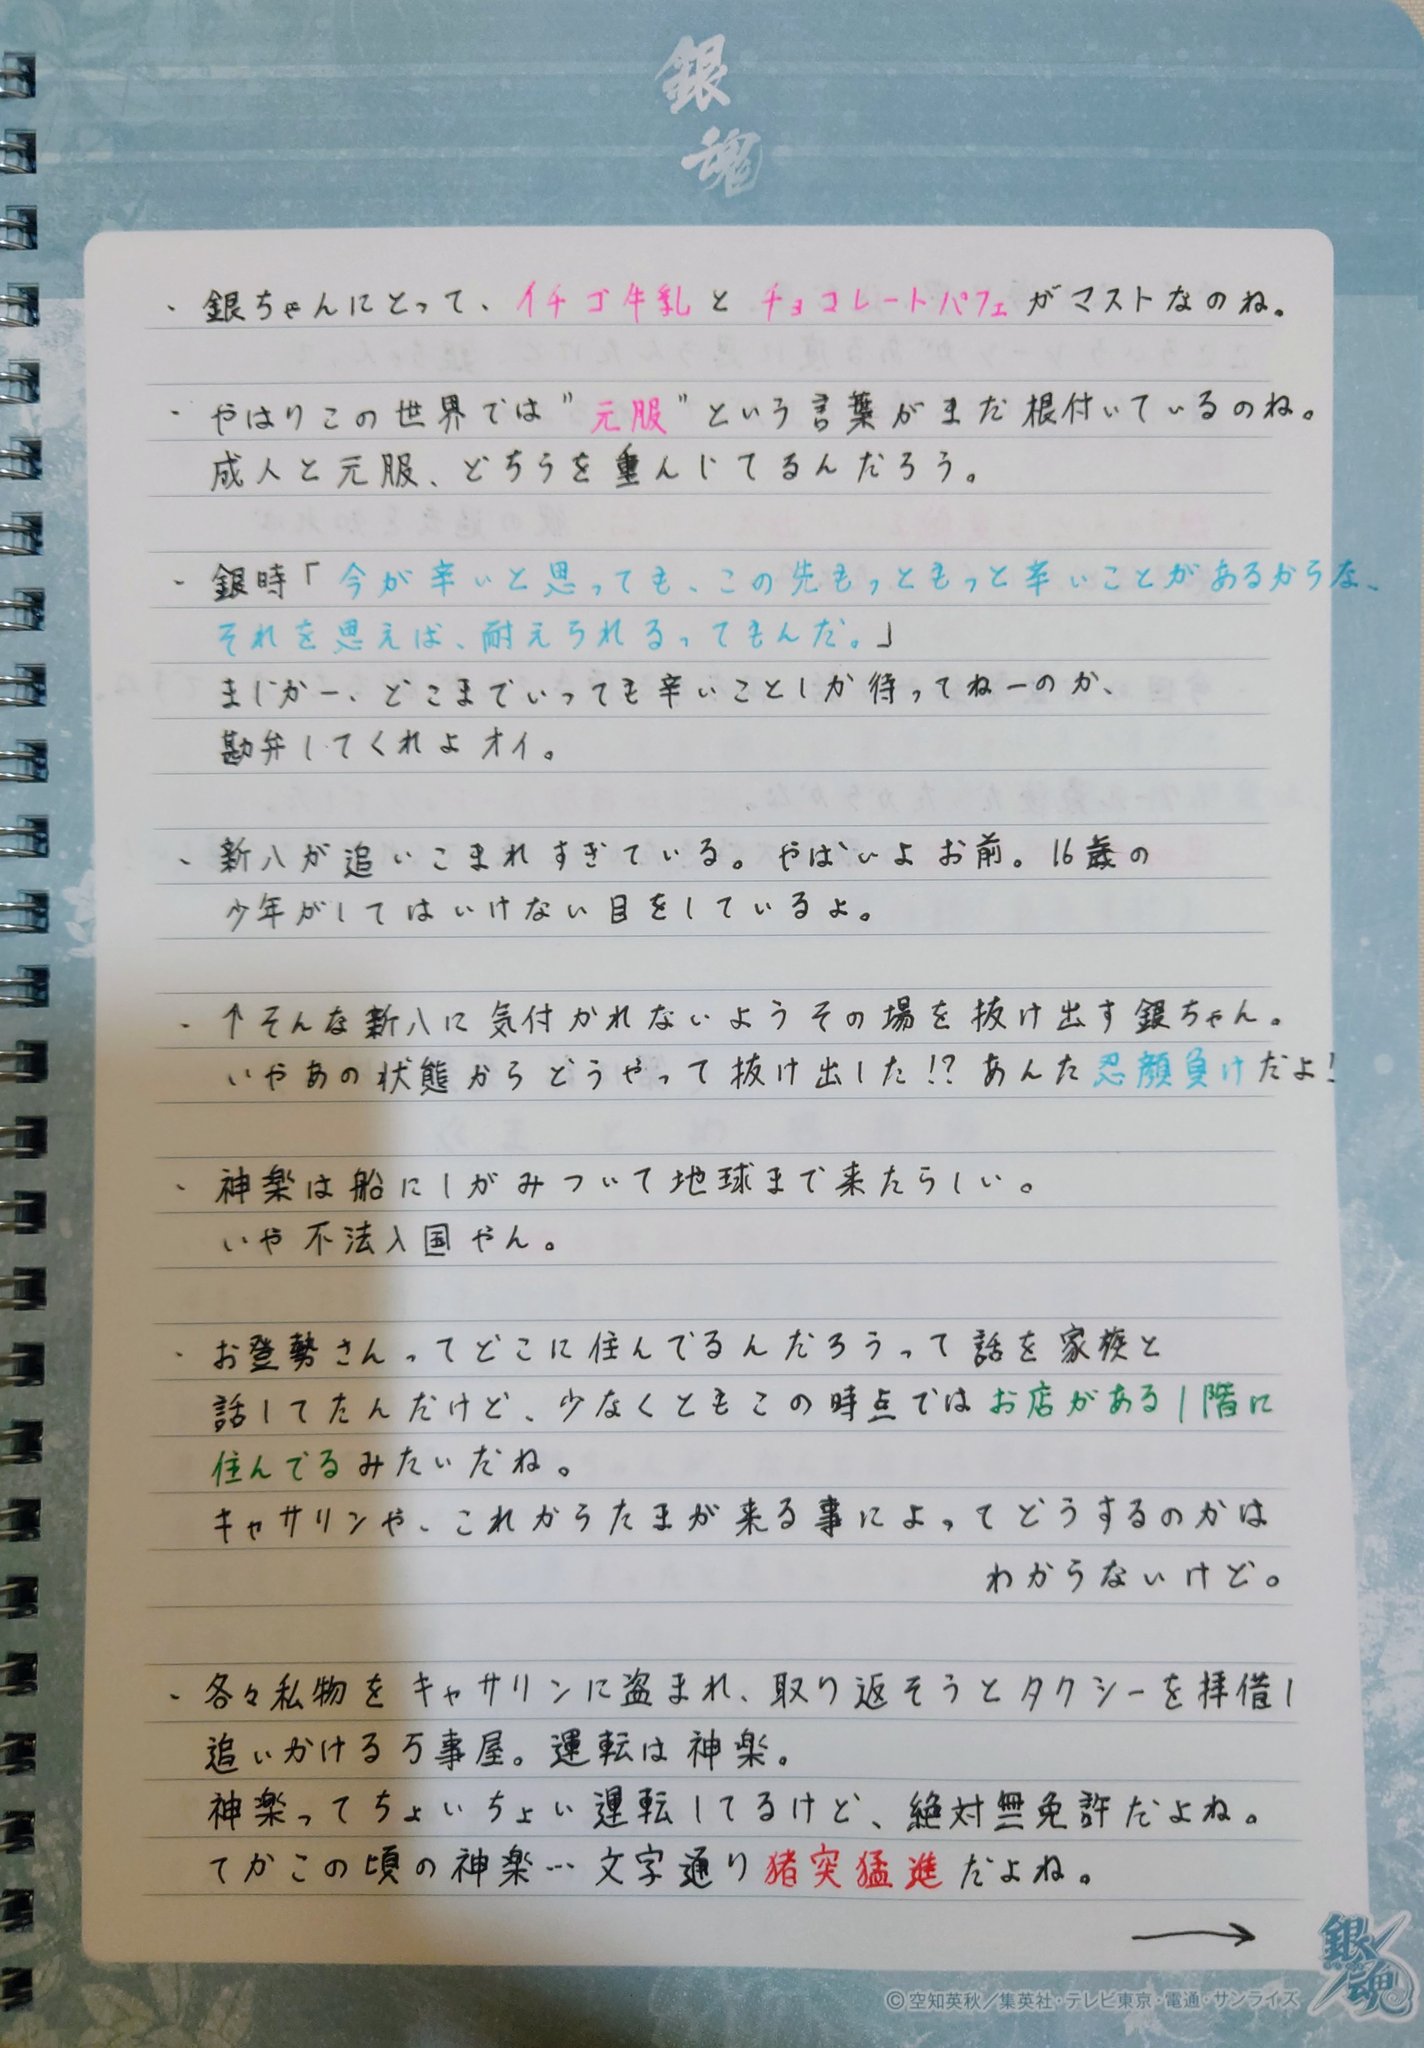 銀
魂
・銀ちゃんにとって、イチゴ牛乳とチョコレートパフェがマストなのね。
・やはりこの世界では"元服"という言葉がまだ根付いているのね。
成人と元服、どちらを重んじてるんだろう。
・銀時「今が辛いと思っても、この先もっともっと辛いことがあるからな、
それを思えば、耐えられるってもんだ。」
まじかー、どこまでいっても辛いことしか待ってねーのか、
勘弁してくれよオイ。
・新八が追いこまれすぎている。やばいよお前。16歳の
少年がしてはいけない目をしているよ。
・↑そんな新八に気付かれないようその場を抜け出す銀ちゃん。
いやあの状態からどうやって抜け出した!?あんた忍顔負けだよ!
・神楽は船にしがみついて地球まで来たらしい。
いや不法入国やん。
・お登勢さんってどこに住んでるんだろうって話を家族と
話してたんだけど、少なくともこの時点ではお店がある1階に
住んでるみたいだね。
キャサリンや、これからたまが来る事によってどうするのかは
わからないけど。
・各々私物をキャサリンに盗まれ、取り返そうとタクシーを拝借し
追いかける万事屋。運転は神楽。
神楽ってちょいちょい運転してるけど、絶対無免許だよね。
てかこの頃の神楽…文字通り猪突猛進だよね。
→
銀魂
©空知英秋／集英社・テレビ東京・電通・サンライズ